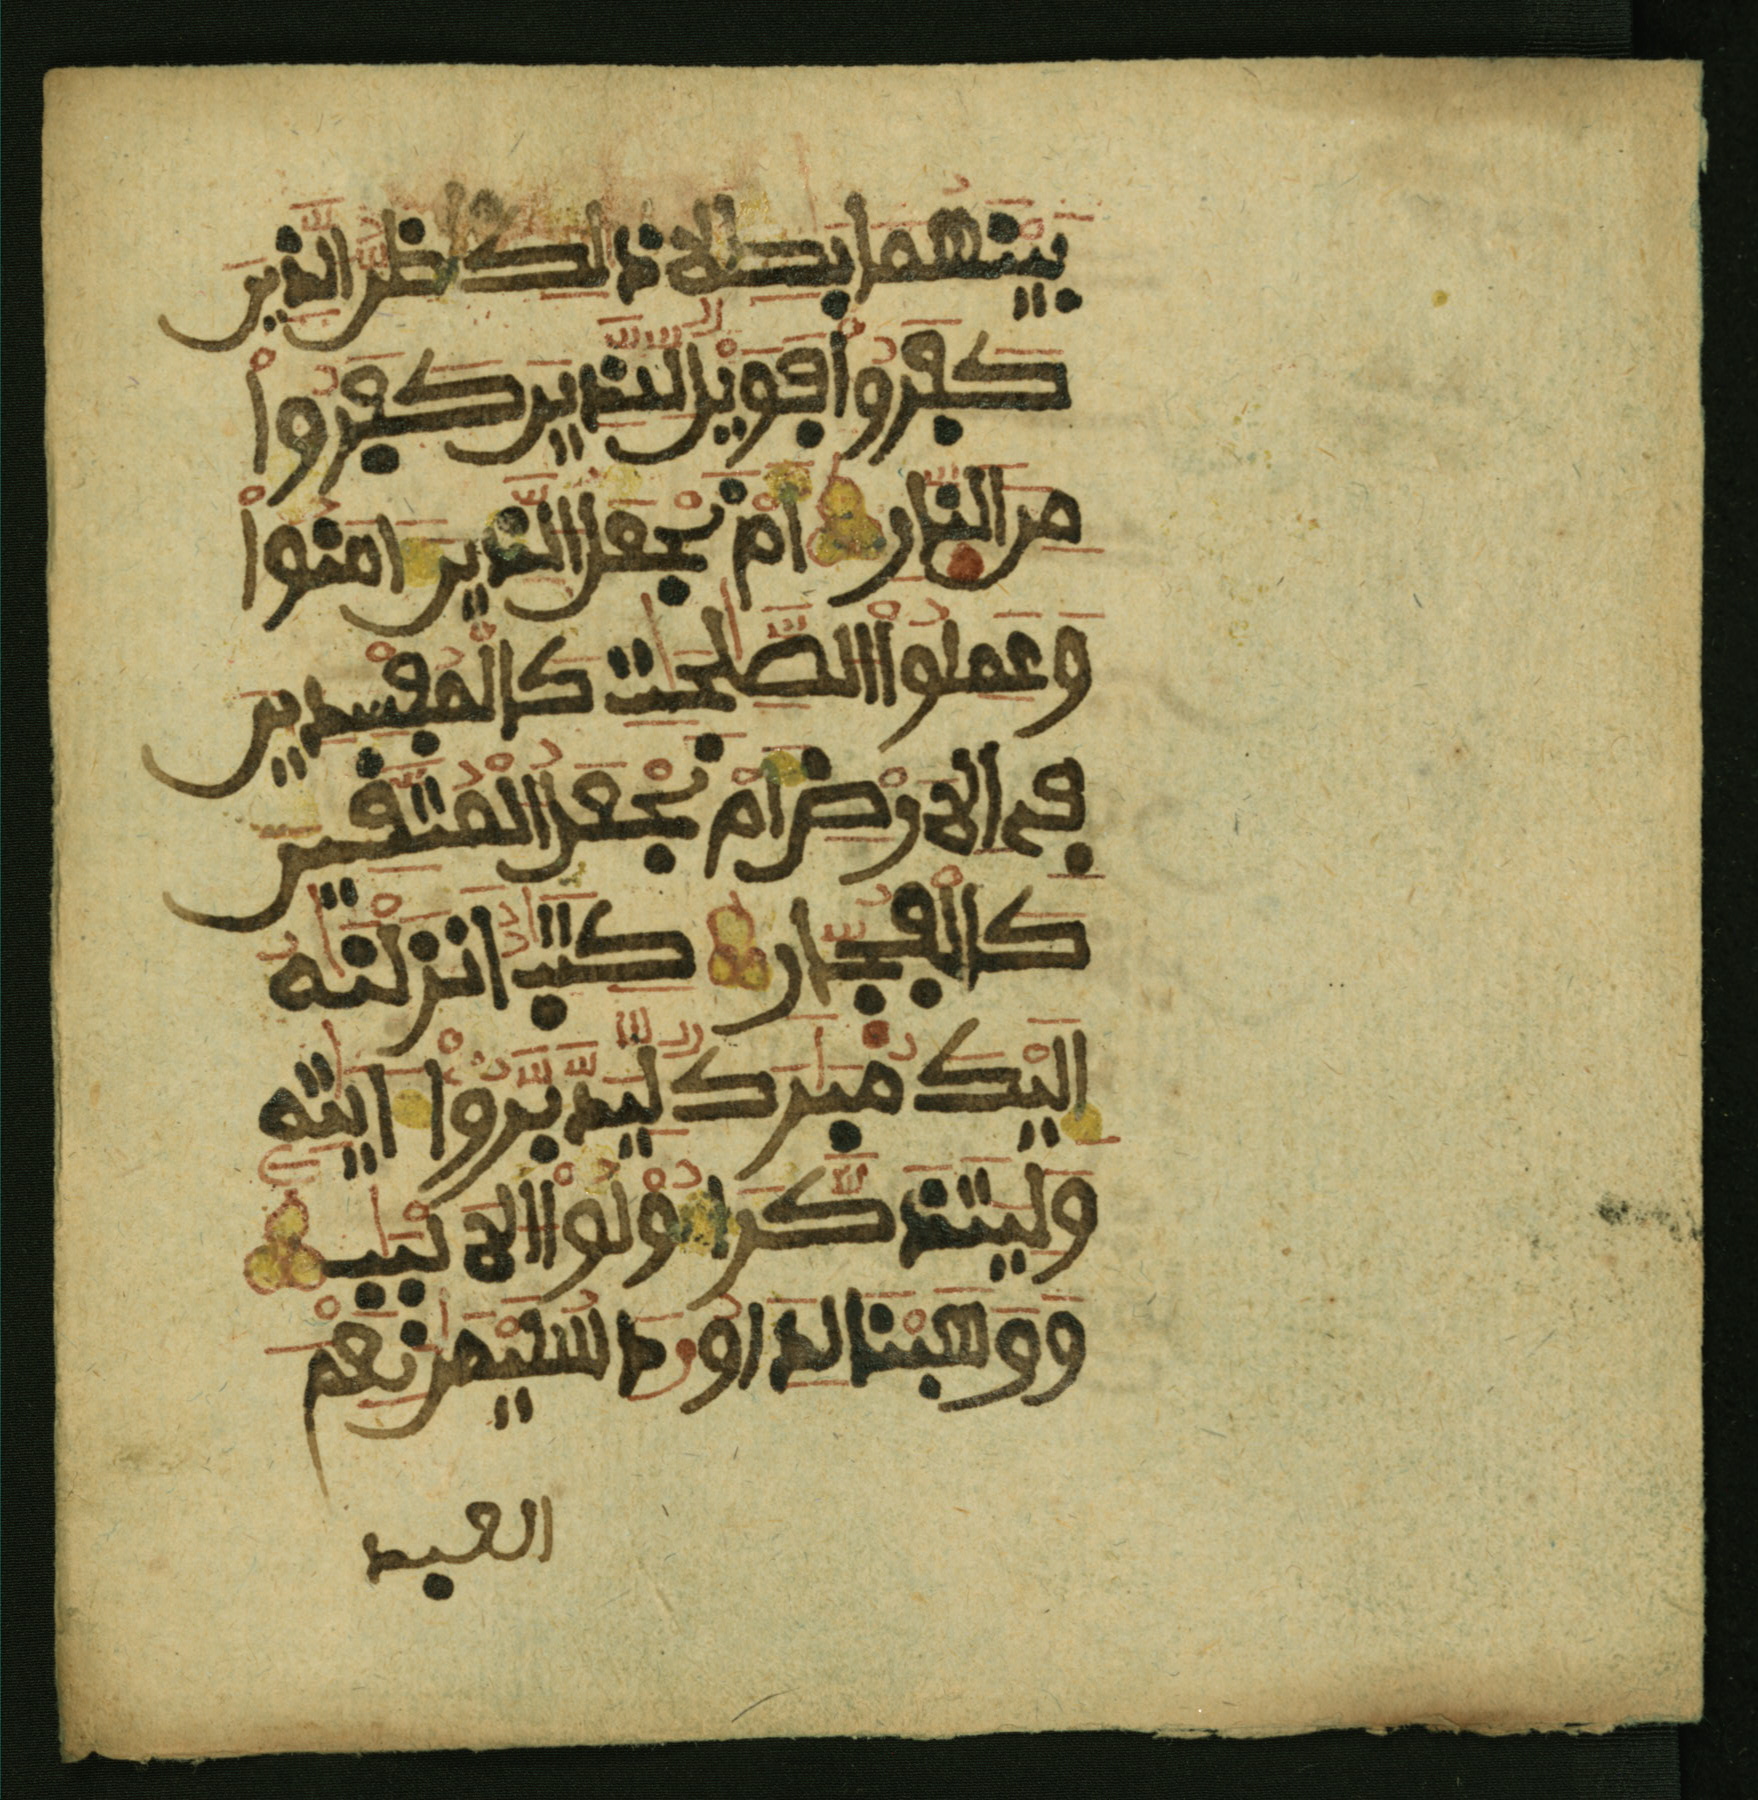 بَيْنَهُمَا بَٰطِلًا ذَٰلِكَ ظَنُّ الَّذِينَ
كَفَرُواْ فَوَيْلٌ لِّلَّذِينَ كَفَرُواْ
مِنَ النَّارِ أَمْ نَجْعَلُ الَّذِينَ ءَامَنُواْ
وَعَمِلُواْ الصَّٰلِحَٰتِ كَالْمُفْسِدِينَ
فِي الَارْضِ أَمْ نَجْعَلُ الْمُتَّقِينَ
كَالْفُجَّارِ كِتَٰبٌ اَنزَلْنَٰهُ
إِلَيْكَ مُبَٰرَكٌ لِّيَدَّبَّرُواْ ءَايَٰتِهِ
وَلِيَتَذَكَّرَ أُوْلُواْ الَالْبَٰبِ
وَوَهَبْنَا لِدَاوُۥدَ سُلَيْمَٰنَ نِعْمَ
العبد